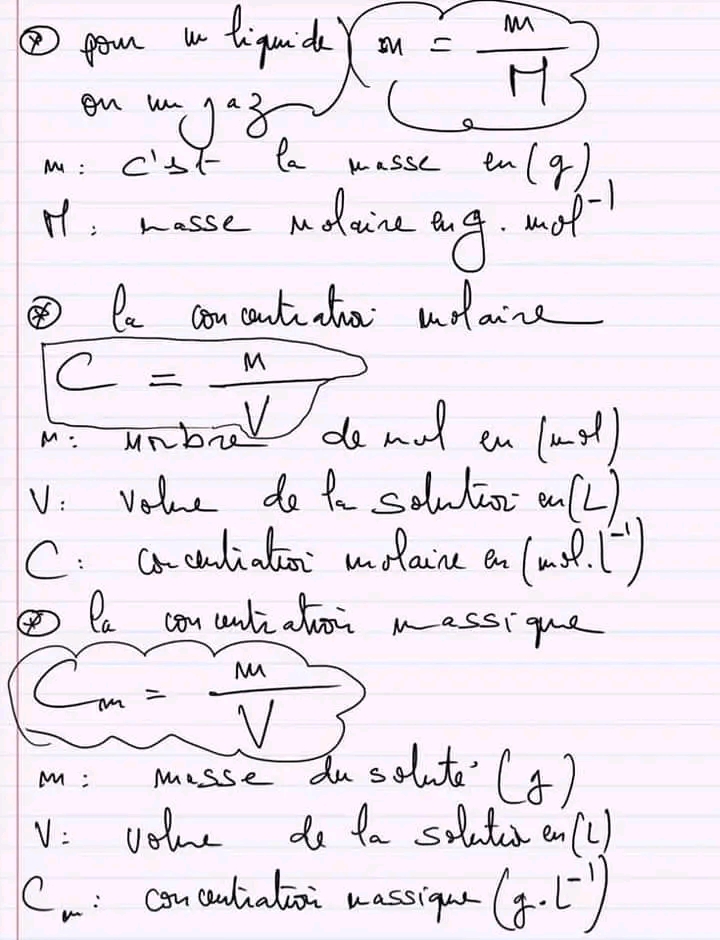 ⊛ pour un liquide ou un gaz n = m/M
m : c'est la masse en (g)
M : masse molaire en g . mol⁻¹
⊛ la concentration molaire
C = n/V
n : nombre de mol en (mol)
V : volume de la solution en (L)
C : concentration molaire en (mol.l⁻¹)
⊛ la concentration massique
Cm = m/V
m : masse du soluté (g)
V : volume de la solution en (L)
Cm : concentration massique (g.L⁻¹)